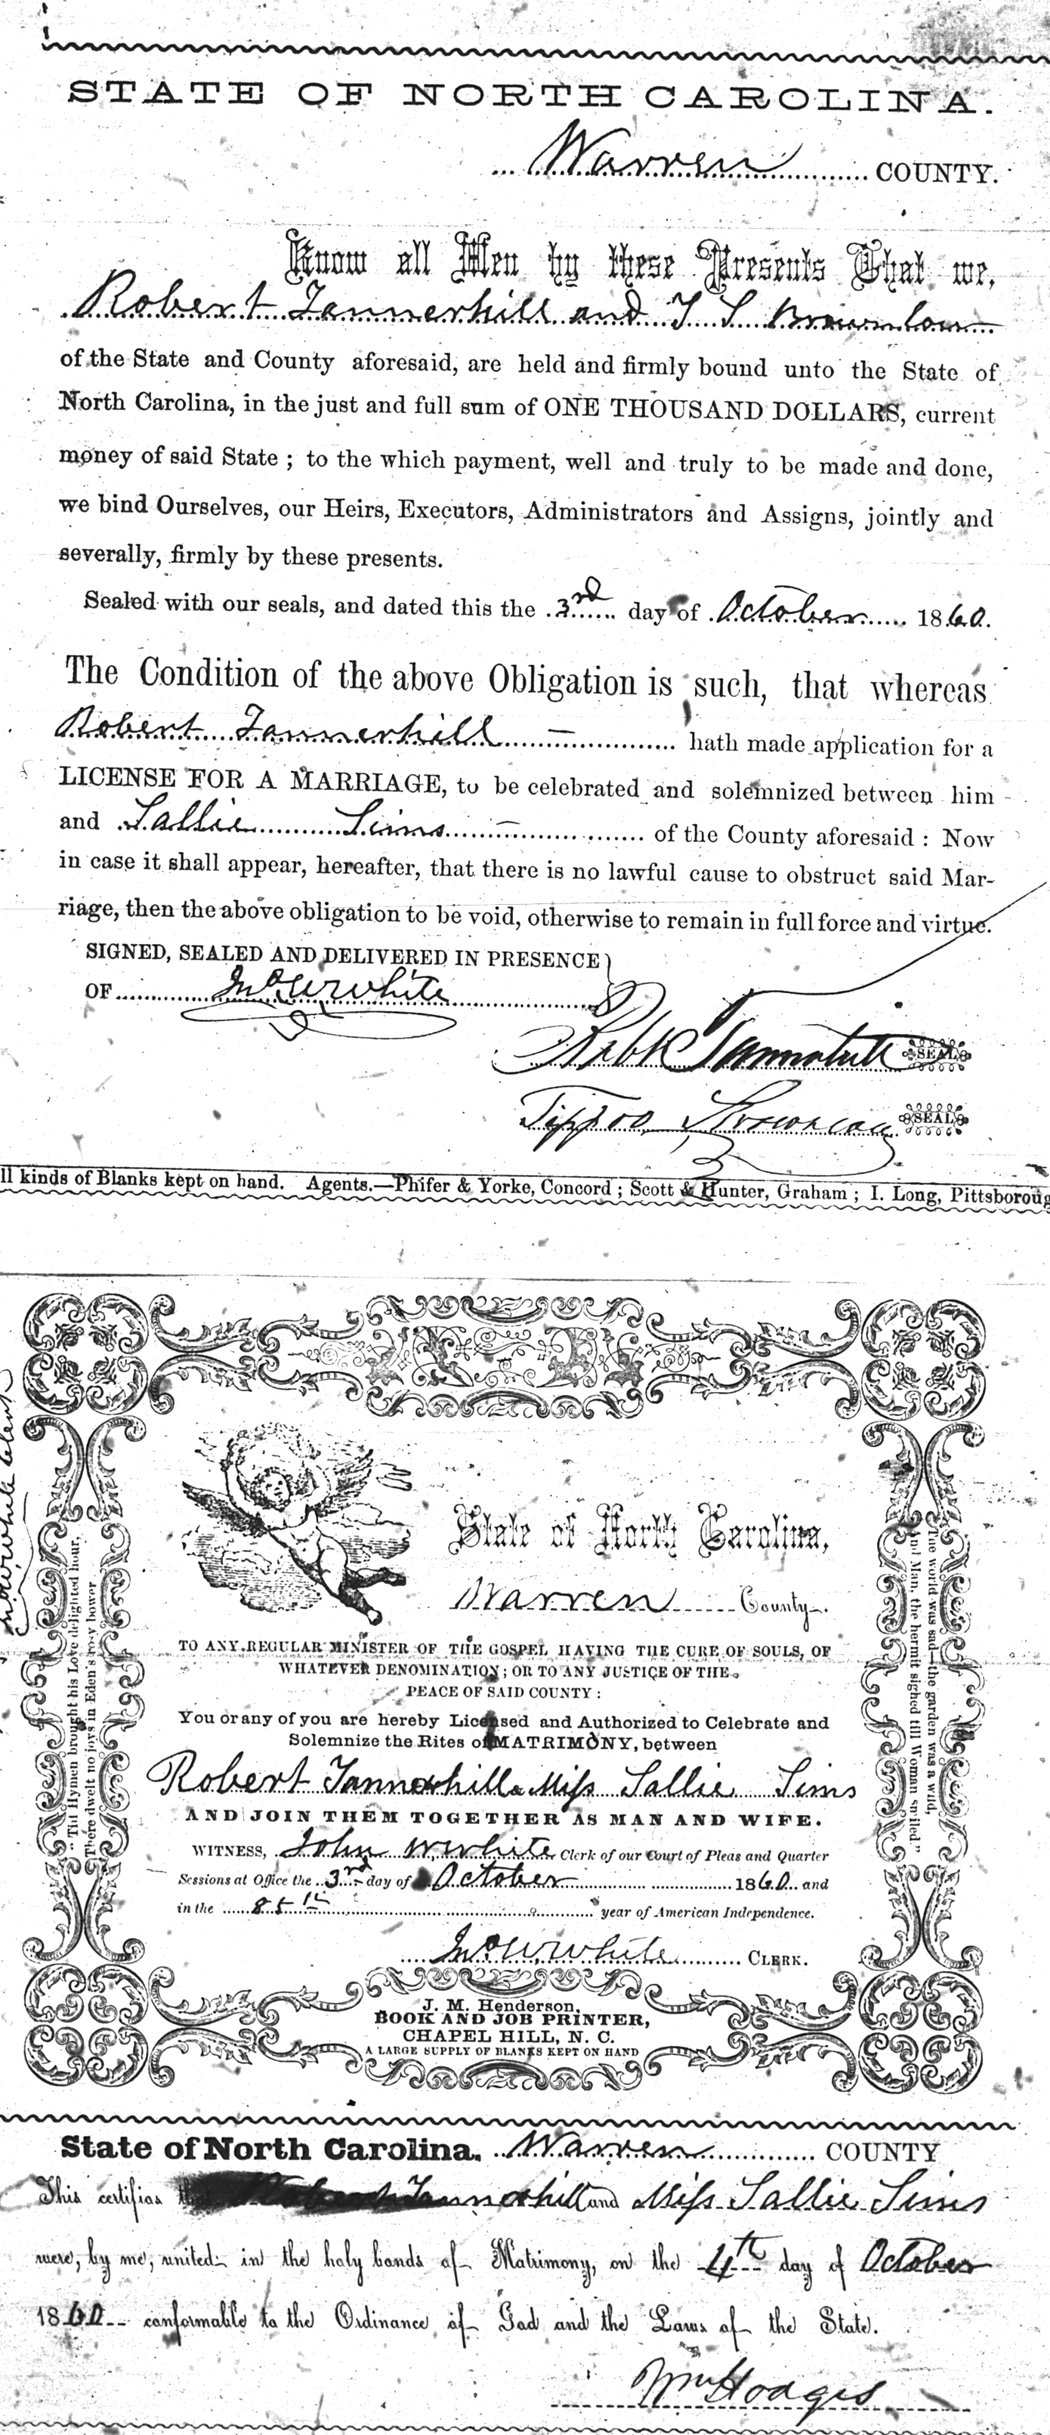 STATE OF NORTH CAROLINA.
Warren COUNTY.
Know all Men by these Presents That we,
Robert Tannerhill and T S Brownlow
of the State and County aforesaid, are held and firmly bound unto the State of
North Carolina, in the just and full sum of ONE THOUSAND DOLLARS, current
money of said State ; to the which payment, well and truly to be made and done,
we bind Ourselves, our Heirs, Executors, Administrators and Assigns, jointly and
severally, firmly by these presents.
Sealed with our seals, and dated this the 3rd day of October 1860.
The Condition of the above Obligation is such, that whereas
Robert Tannerhill hath made application for a
LICENSE FOR A MARRIAGE, to be celebrated and solemnized between him
and Sallie Sims of the County aforesaid : Now
in case it shall appear, hereafter, that there is no lawful cause to obstruct said Mar-
riage, then the above obligation to be void, otherwise to remain in full force and virtue.
SIGNED, SEALED AND DELIVERED IN PRESENCE
OF Jno W White
SEAL
Tippoo Brownlow SEAL
ll kinds of Blanks kept on hand. Agents.—Phifer & Yorke, Concord ; Scott & Hunter, Graham ; I. Long, Pittsboroug
Jno W White Clerk
"Till Hymen brought his Love delighted hour,
There dwelt no joys in Eden's rosy bower
The world was sad—the garden was a wild,
And Man, the hermit sighed till Woman smiled."
State of North Carolina,
Warren County.
TO ANY REGULAR MINISTER OF THE GOSPEL HAVING THE CURE OF SOULS, OF
WHATEVER DENOMINATION; OR TO ANY JUSTICE OF THE
PEACE OF SAID COUNTY :
You or any of you are hereby Licensed and Authorized to Celebrate and
Solemnize the Rites of MATRIMONY, between
Robert Tannerhill & Miss Sallie Sims
AND JOIN THEM TOGETHER AS MAN AND WIFE.
WITNESS, John W White Clerk of our Court of Pleas and Quarter
Sessions at Office the 3rd day of October 1860 and
in the 85th year of American Independence.
Jno W White CLERK.
J. M. Henderson,
BOOK AND JOB PRINTER,
CHAPEL HILL, N. C.
A LARGE SUPPLY OF BLANKS KEPT ON HAND
State of North Carolina. Warren COUNTY
This certifies Robert Tannerhill and Miss Sallie Sims
were, by me, united in the holy bands of Matrimony, on the 4th day of October
1860 conformable to the Ordinance of God and the Laws of the State.
Wm Hodges